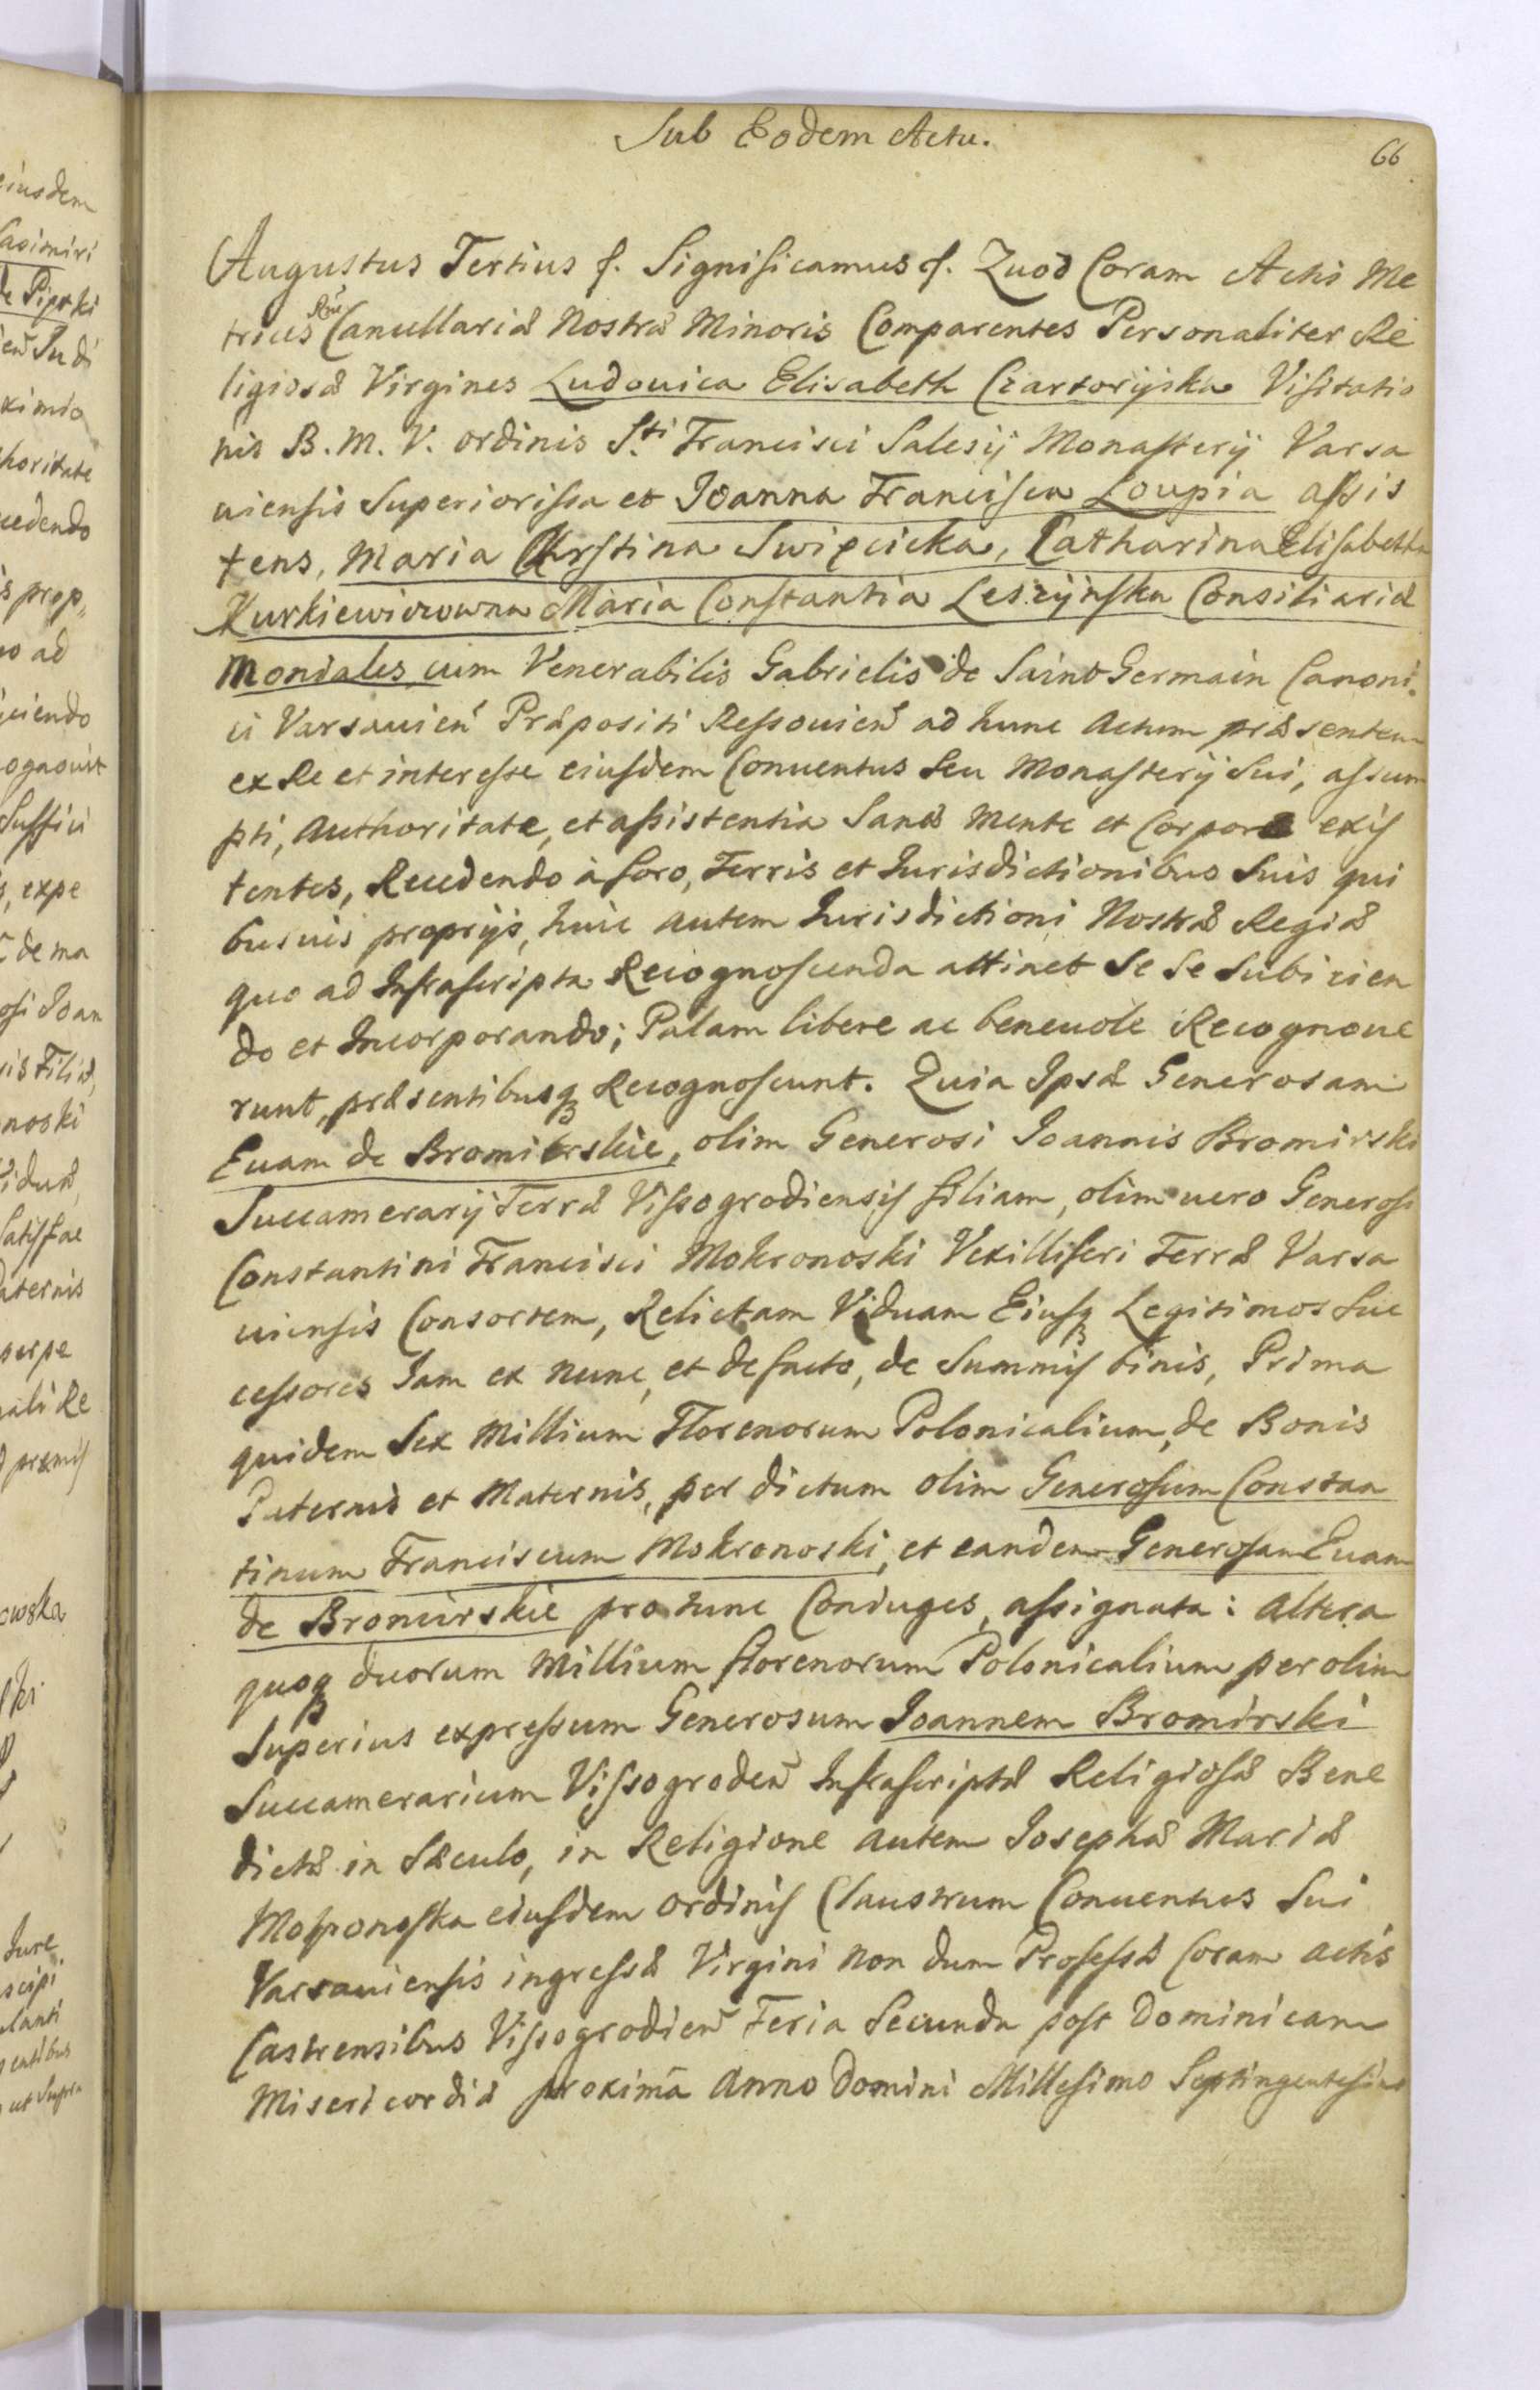 Sub Eodem Actu.
66
Augustus Tertius f. Significamus f. Quod Coram Actis Me
trices Rni Cancellariæ Nostræ Minoris Comparentes Personaliter Re
ligiosæ Virgines Ludouica Elisabeth Czartoryska Visitatio
nis B. M. V. ordinis S.ti Francisci Salesij Monasterij Varsa
uiensis Superiorissa et Joanna Francisca Loupia assis
tens, Maria Chrstina Swięcicka, Catharina Elisabetha
Kurkiewiczowna Maria Constantia Leszÿnska Consiliariæ
Moniales cum Venerabilis Gabrielis de Saint Germain Canoni
ci Varsauien̄ Præpositi Ressouien̄ ad hunc Actum præsentem
ex Re et interesse eiusdem Conuentus seu Monasterij Sui, assum
pti, Authoritate, et assistentia Sanæ Mente et Corpore exis
tentes, Recedendo à foro, Terris et Jurisdictionibus Suis qui
busuis proprijs, huic autem Jurisdictioni Nostræ Regiæ
quo ad Infrascripta Recognoscenda attinet Se Se Subiicien
do et Incorporando; Palam libere ac beneuole Recognoue
runt, præsentibusq Recognoscunt. Quia Ipsæ Generosam
Euam de Bromierskie, olim Generosi Joannis Bromirski
Succamerarij Terræ Vissogrodiensis filiam, olim uero Generosi
Constantini Francisci Mokronoski Vexilliferi Terræ Varsa
uiensis Consortem, Relictam Viduam Eiusq Legitimos Suc
cessores Jam ex nunc, et de facto, de Summis binis, Prima
quidem Sex Millium Florenorum Polonicalium, de Bonis
Paternis et Maternis, per dictum olim Generosum Constan
tinum Franciscum Mokronoski, et eandem Generosam Euam
de Bromirskie pro tunc Coniuges, assignata: altera
quoq duorum Millium florenorum Polonicalium per olim
Superius expressum Generosum Joannem Bromirski
Succamerarium Vissogroden̄ Infrascriptæ Religiosæ Bene
dictæ in Sæculo, in Religione autem Josephæ Mariæ
Mokronoska eiusdem ordinis Claustrum Conuentus Sui
Varsauiensis ingressæ Virgini non dum Professæ Coram actis
Castrensibus Vissogrodien̄ Feria Secunda post Dominicam
Misericordiæ proximā Anno Domini Millesimo Septingentesimo